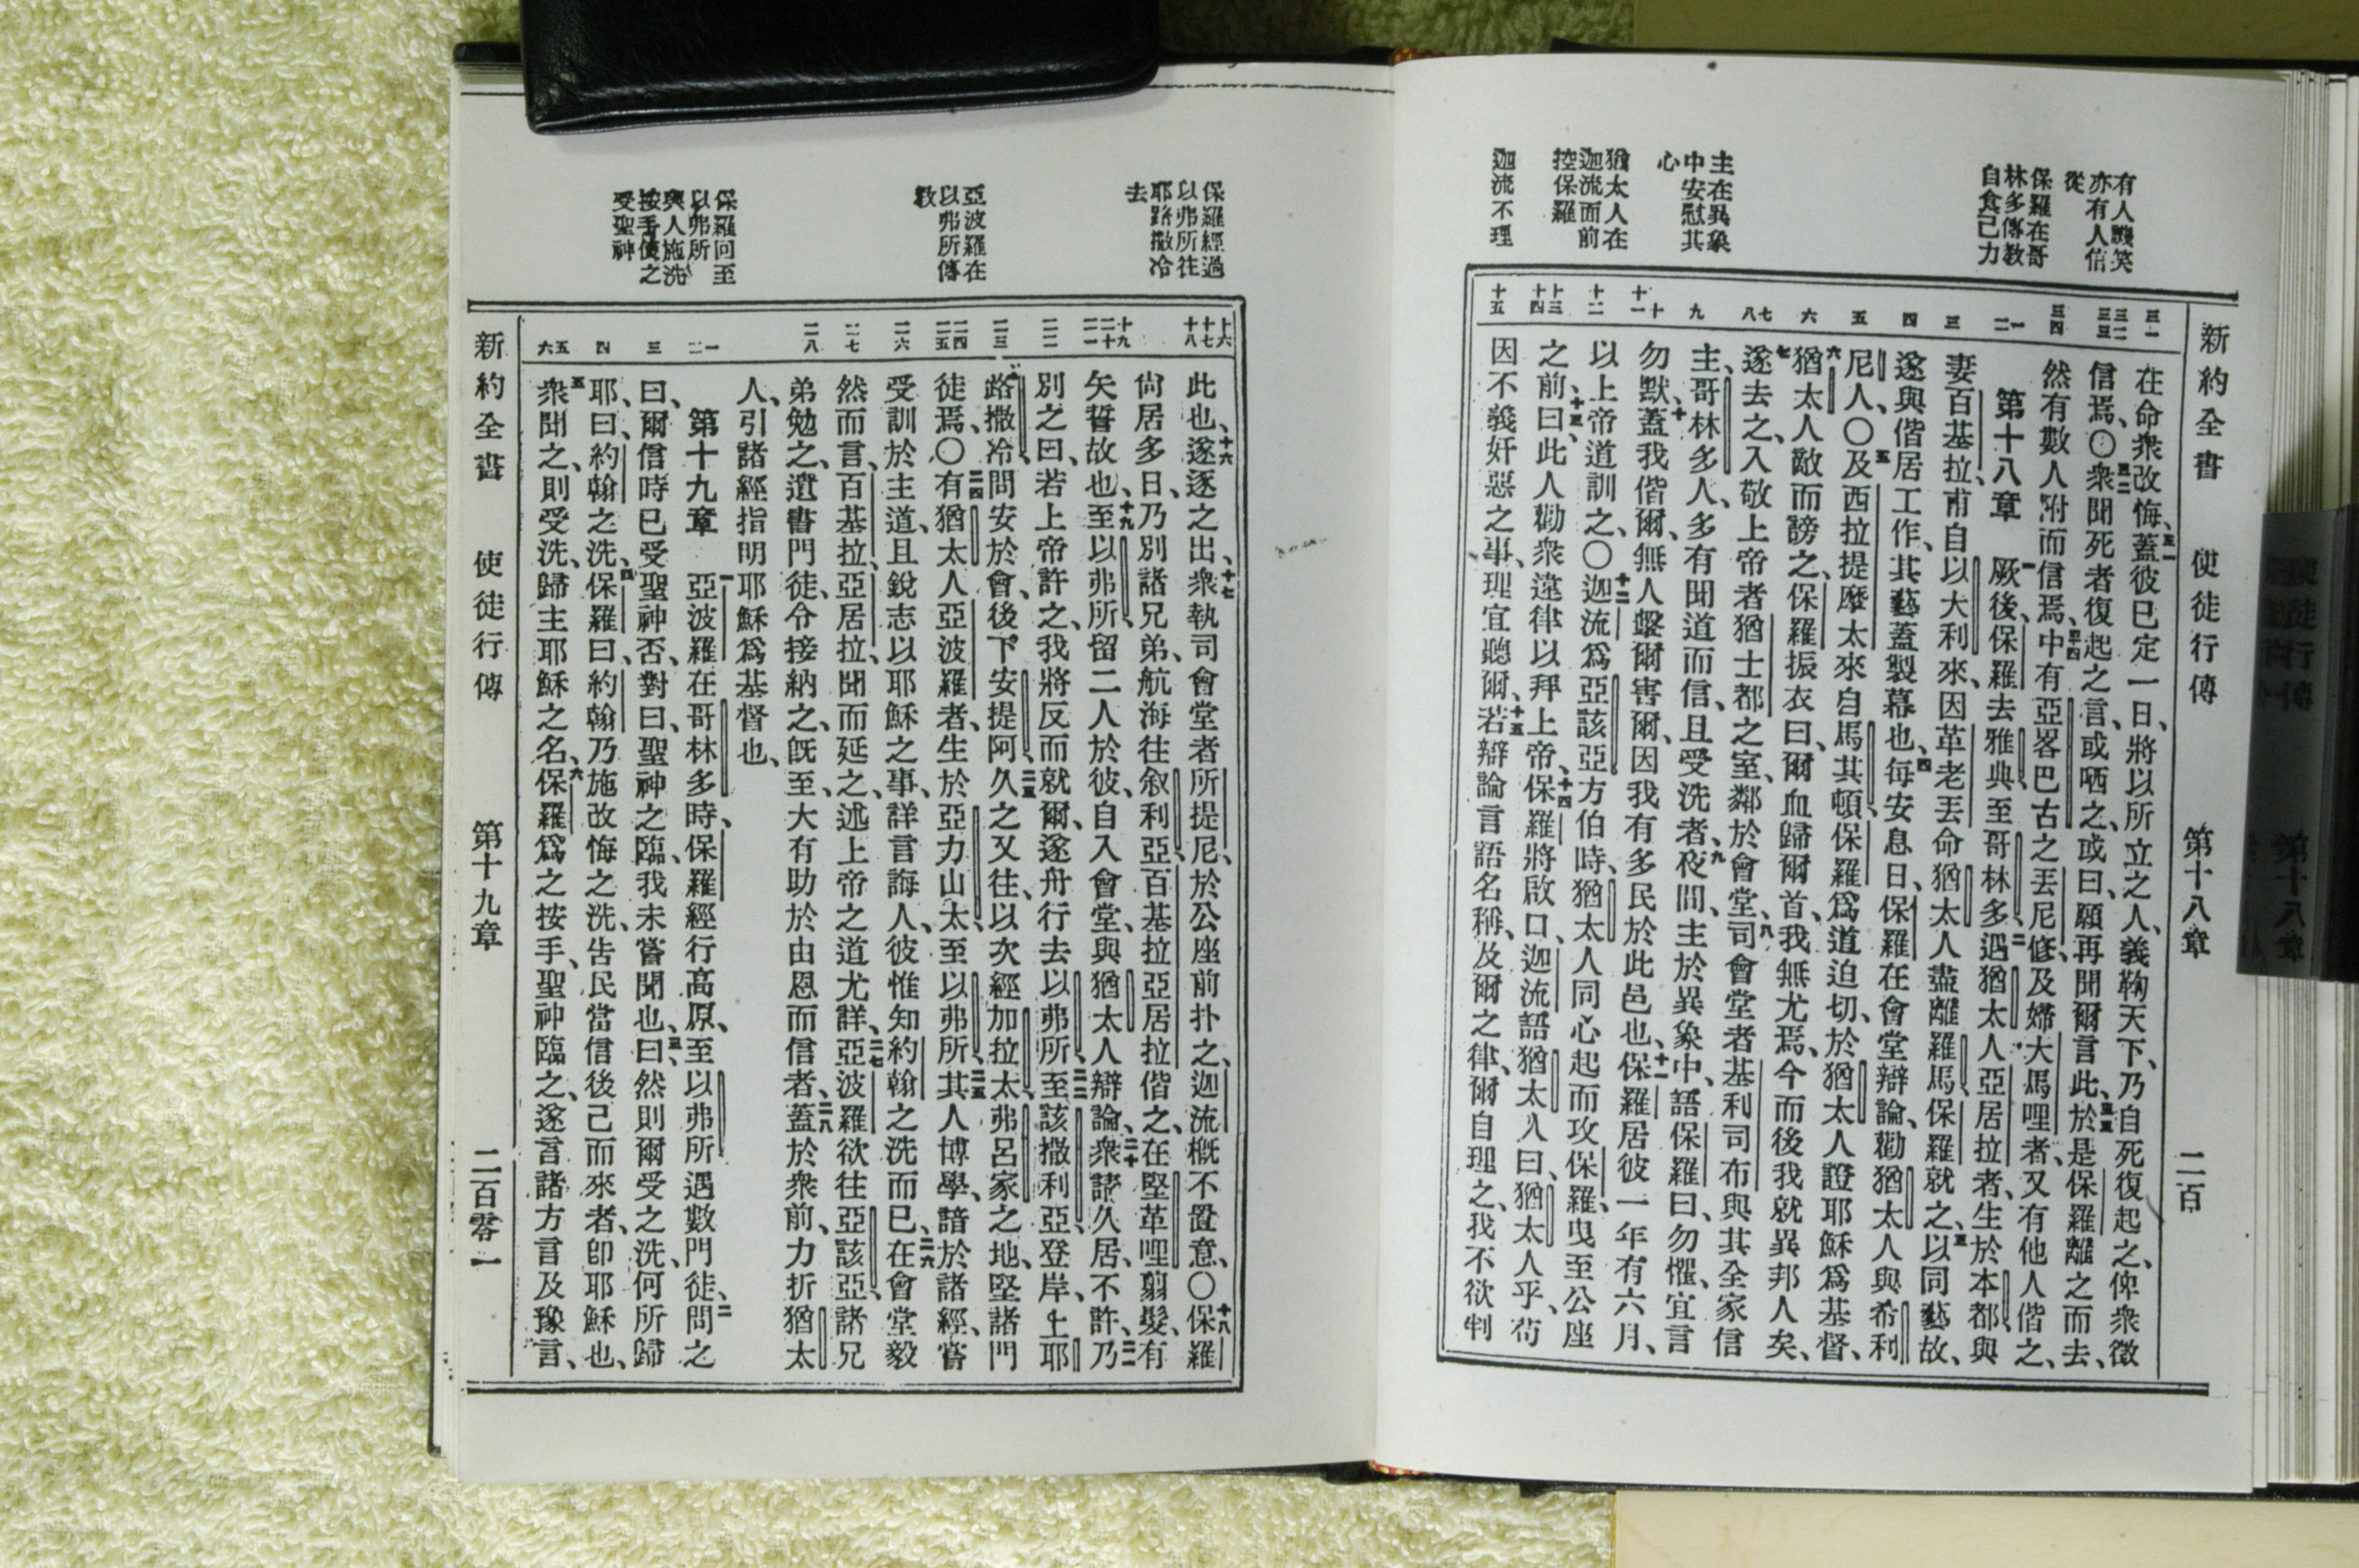 新約全書　使徒行傳　第十八章　二百
有人譏笑
亦有人信
從
保羅在哥
林多傳教
自食己力
主在異象
中安慰其
心
猶太人在
迦流面前
控保羅
迦流不理
三一
三二
三三
三四
一
二
三
四
五
六
七
八
九
十
十一
十二
十三
十四
十五
在命衆改悔、三一蓋彼已定一日、將以所立之人、義鞫天下、乃自死復起之、俾衆徵
信焉、〇三二衆聞死者復起之言、或哂之、或曰、願再聞爾言此、三三於是保羅離之而去、
然有數人附而信焉、三四中有亞畧巴古之丟尼修、及婦大馬哩者、又有他人偕之、
第十八章　一厥後、保羅去雅典、至哥林多、二遇猶太人亞居拉者、生於本都、與
妻百基拉、甫自以大利來、因革老丟命猶太人盡離羅馬、保羅就之、三以同藝故、
遂與偕居工作、其藝蓋製幕也、四每安息日、保羅在會堂辯論、勸猶太人與希利
尼人、〇五及西拉提摩太來自馬其頓、保羅爲道迫切、於猶太人證耶穌爲基督、
六猶太人敵而謗之、保羅振衣曰、爾血歸爾首、我無尤焉、今而後我就異邦人矣、
七遂去之、入敬上帝者猶士都之室、鄰於會堂、八司會堂者基利司布、與其全家信
主、哥林多人、多有聞道而信、且受洗者、九夜間、主於異象中、語保羅曰、勿懼、宜言
勿默、十蓋我偕爾、無人擊爾害爾、因我有多民於此邑也、十一保羅居彼一年有六月、
以上帝道訓之、〇十二迦流爲亞該亞方伯時、猶太人同心起而攻保羅、曳至公座
之前、十三曰、此人勸衆違律以拜上帝、十四保羅將啟口、迦流語猶太人曰、猶太人乎、苟
因不義奸惡之事、理宜聽爾、十五若辯論言語名稱、及爾之律、爾自理之、我不欲判
保羅經過
以弗所往
耶路撒冷
去
亞波羅在
以弗所傳
敎
保羅回至
以弗所
與人施洗
按手使之
受聖神
上六
十七
十八
十九
二十
二一
二二
二三
二四
二五
二六
二七
二八
一
二
三
四
五
六
此也、十六遂逐之出、十七衆執司會堂者所提尼、於公座前扑之、迦流概不置意、〇十八保羅
尚居多日、乃別諸兄弟、航海往叙利亞、百基拉亞居拉偕之、在堅革哩翦髮、有
矢誓故也、十九至以弗所、留二人於彼、自入會堂、與猶太人辯論、二十衆請久居、不許、二一乃
別之曰、若上帝許之、我將反而就爾、遂舟行去以弗所、二二至該撒利亞登岸、上耶
路撒冷、問安於會、後下安提阿、二三久之又往、以次經加拉太、弗呂家之地、堅諸門
徒焉、〇二四有猶太人亞波羅者、生於亞力山太、至以弗所、二五其人博學、諳於諸經、嘗
受訓於主道、且銳志以耶穌之事、詳言誨人、彼惟知約翰之洗而已、二六在會堂毅
然而言、百基拉、亞居拉、聞而延之、述上帝之道尤詳、二七亞波羅欲往亞該亞、諸兄
弟勉之、遺書門徒、令接納之、旣至、大有助於由恩而信者、二八蓋於衆前、力折猶太
人、引諸經指明耶穌爲基督也、
第十九章　一亞波羅在哥林多時、保羅經行高原、至以弗所、遇數門徒、二問之
曰、爾信時已受聖神否、對曰、聖神之臨、我未嘗聞也、三曰、然則爾受之洗、何所歸
耶、曰、約翰之洗、四保羅曰、約翰乃施改悔之洗、告民當信後己而來者、卽耶穌也、
五衆聞之、則受洗、歸主耶穌之名、六保羅爲之按手、聖神臨之、遂言諸方言及豫言、
新約全書　使徒行傳　第十九章　二百零一